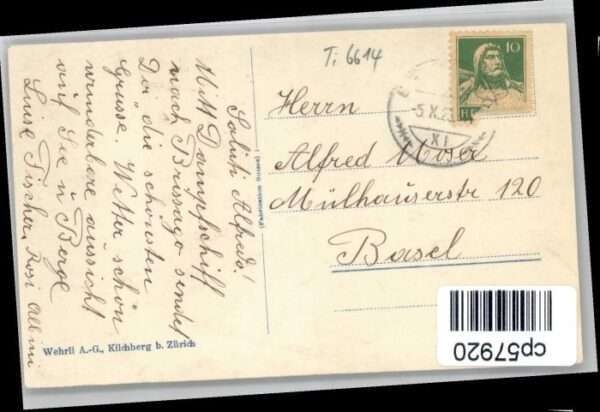 Saluti Alfredo!
Mitt Dampfschiff
nach Brissago sendet
Dir die schönsten
Grüsse. Wetter schön
wunderbare aussicht
auf See u Berge
Luise Fischer, Rosi
Wehrli A.-G., Kilchberg b. Zürich
T. 6614
10
-5.X.2
XI
Herrn
Alfred
Mülhauserstr 120
Basel
cp57920